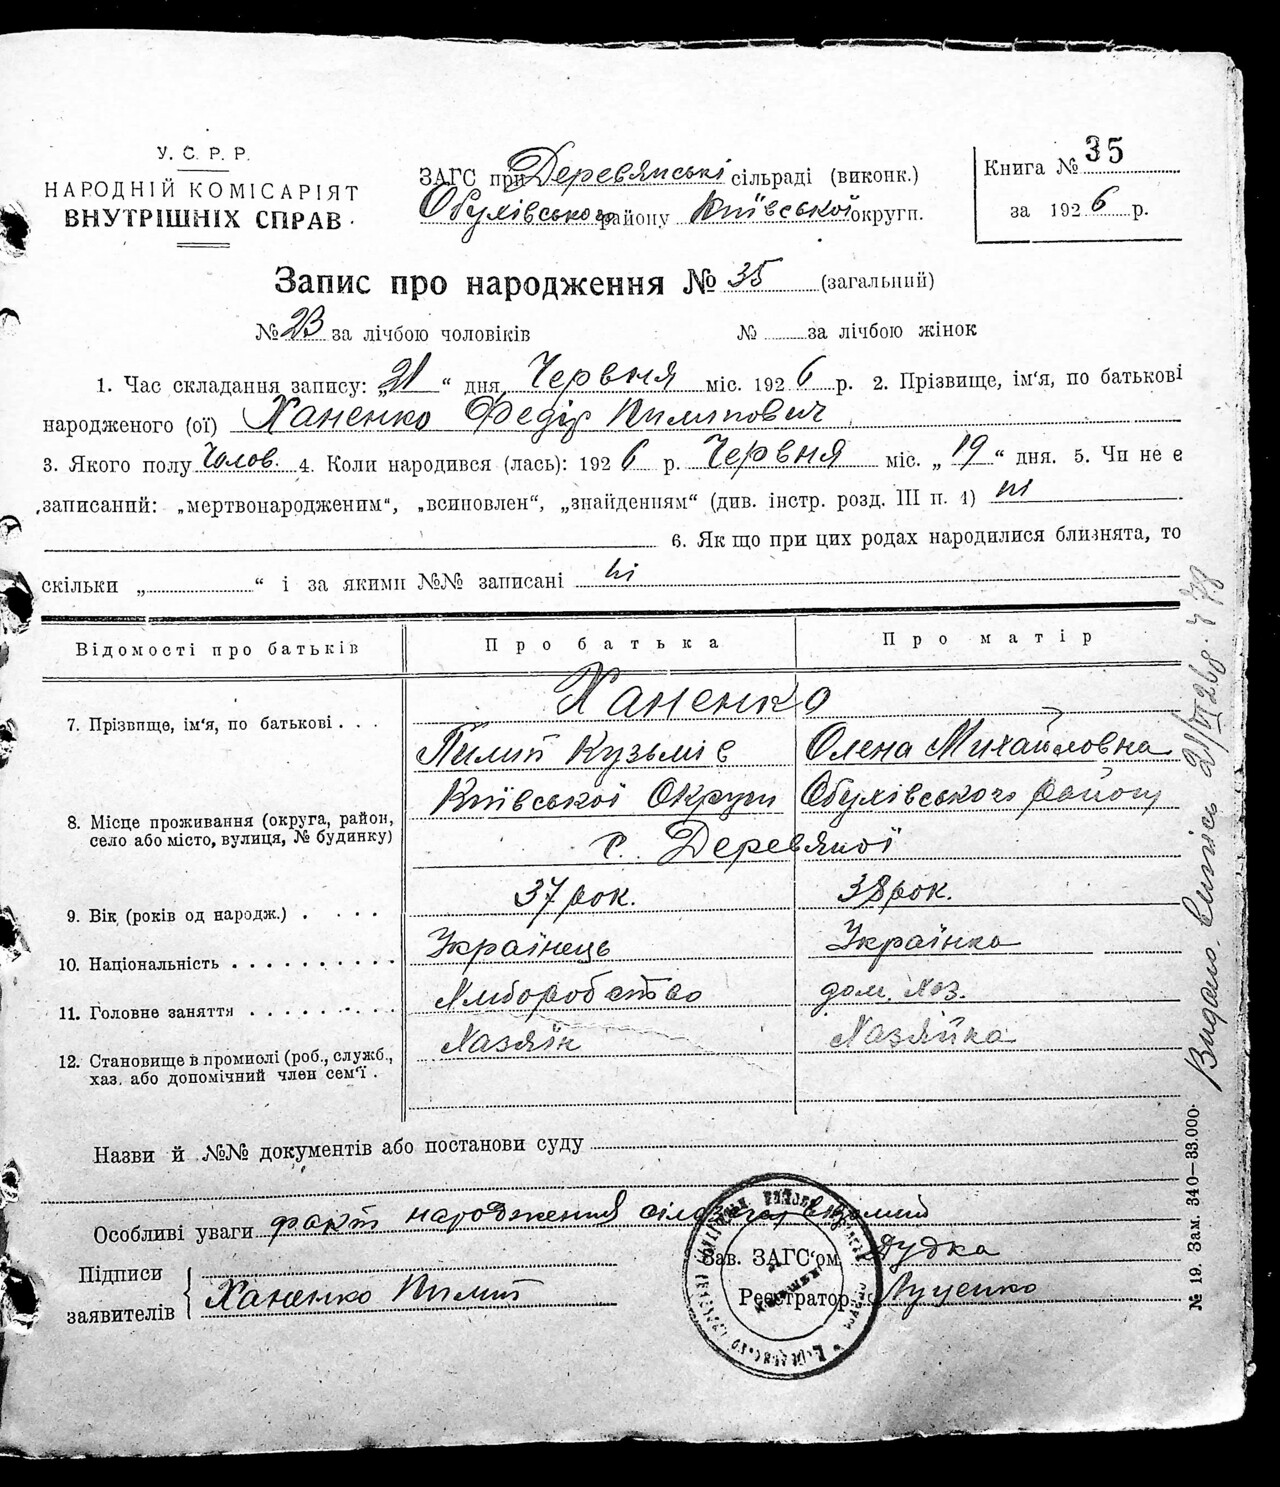 У. С. Р. Р.
НАРОДНІЙ КОМІСАРІЯТ
ВНУТРІШНІХ СПРАВ
ЗАГС при Деревянські сільраді (виконк.)
Обухівського району Київської округи.
Книга № 35
за 1926 р.
Запис про народження № 35 (загальний)
№ 23 за лічбою чоловіків № за лічбою жінок
1. Час складання запису: „21“ дня Червня міс. 1926 р. 2. Прізвище, ім'я, по батькові
народженого (ої) Ханенко Федір Пилипович
3. Якого полу Чолов. 4. Коли народився (лась): 1926 р. Червня міс. „19“ дня. 5. Чи не є
записаний: „мертвонародженим“, „всиновлен“, „знайденням“ (див. інстр. розд. III п. 1) ні
6. Як що при цих родах народилися близнята, то
скільки „ “ і за якими №№ записані ні
Відомості про батьків Про батька Про матір
Ханенко
7. Прізвище, ім'я, по батькові . . .
Пилип Кузьмів Олена Михайловна
Київської Округи Обухівського району
8. Місце проживання (округа, район,
село або місто, вулиця, № будинку)
с. Деревяної
9. Вік (років од народж.) . . . . 37 рок. 38 рок.
10. Національність . . . . . . . . . . Українець Українка
11. Головне заняття . . . . . . . . . Хліборобство дом. хоз.
12. Становище в промислі (роб., служб.,
хаз. або допомічний член сем'ї . Хазяїн Хазяйка
Назви й №№ документів або постанови суду
Особливі уваги факт народження
Підписи
заявителів Ханенко Пилип
Зав. ЗАГС'ом Дудка
Реєстратор Луценко
Видано. випись 21/VI 26 р. ч 78
№ 19. Зам. 340—33.000.